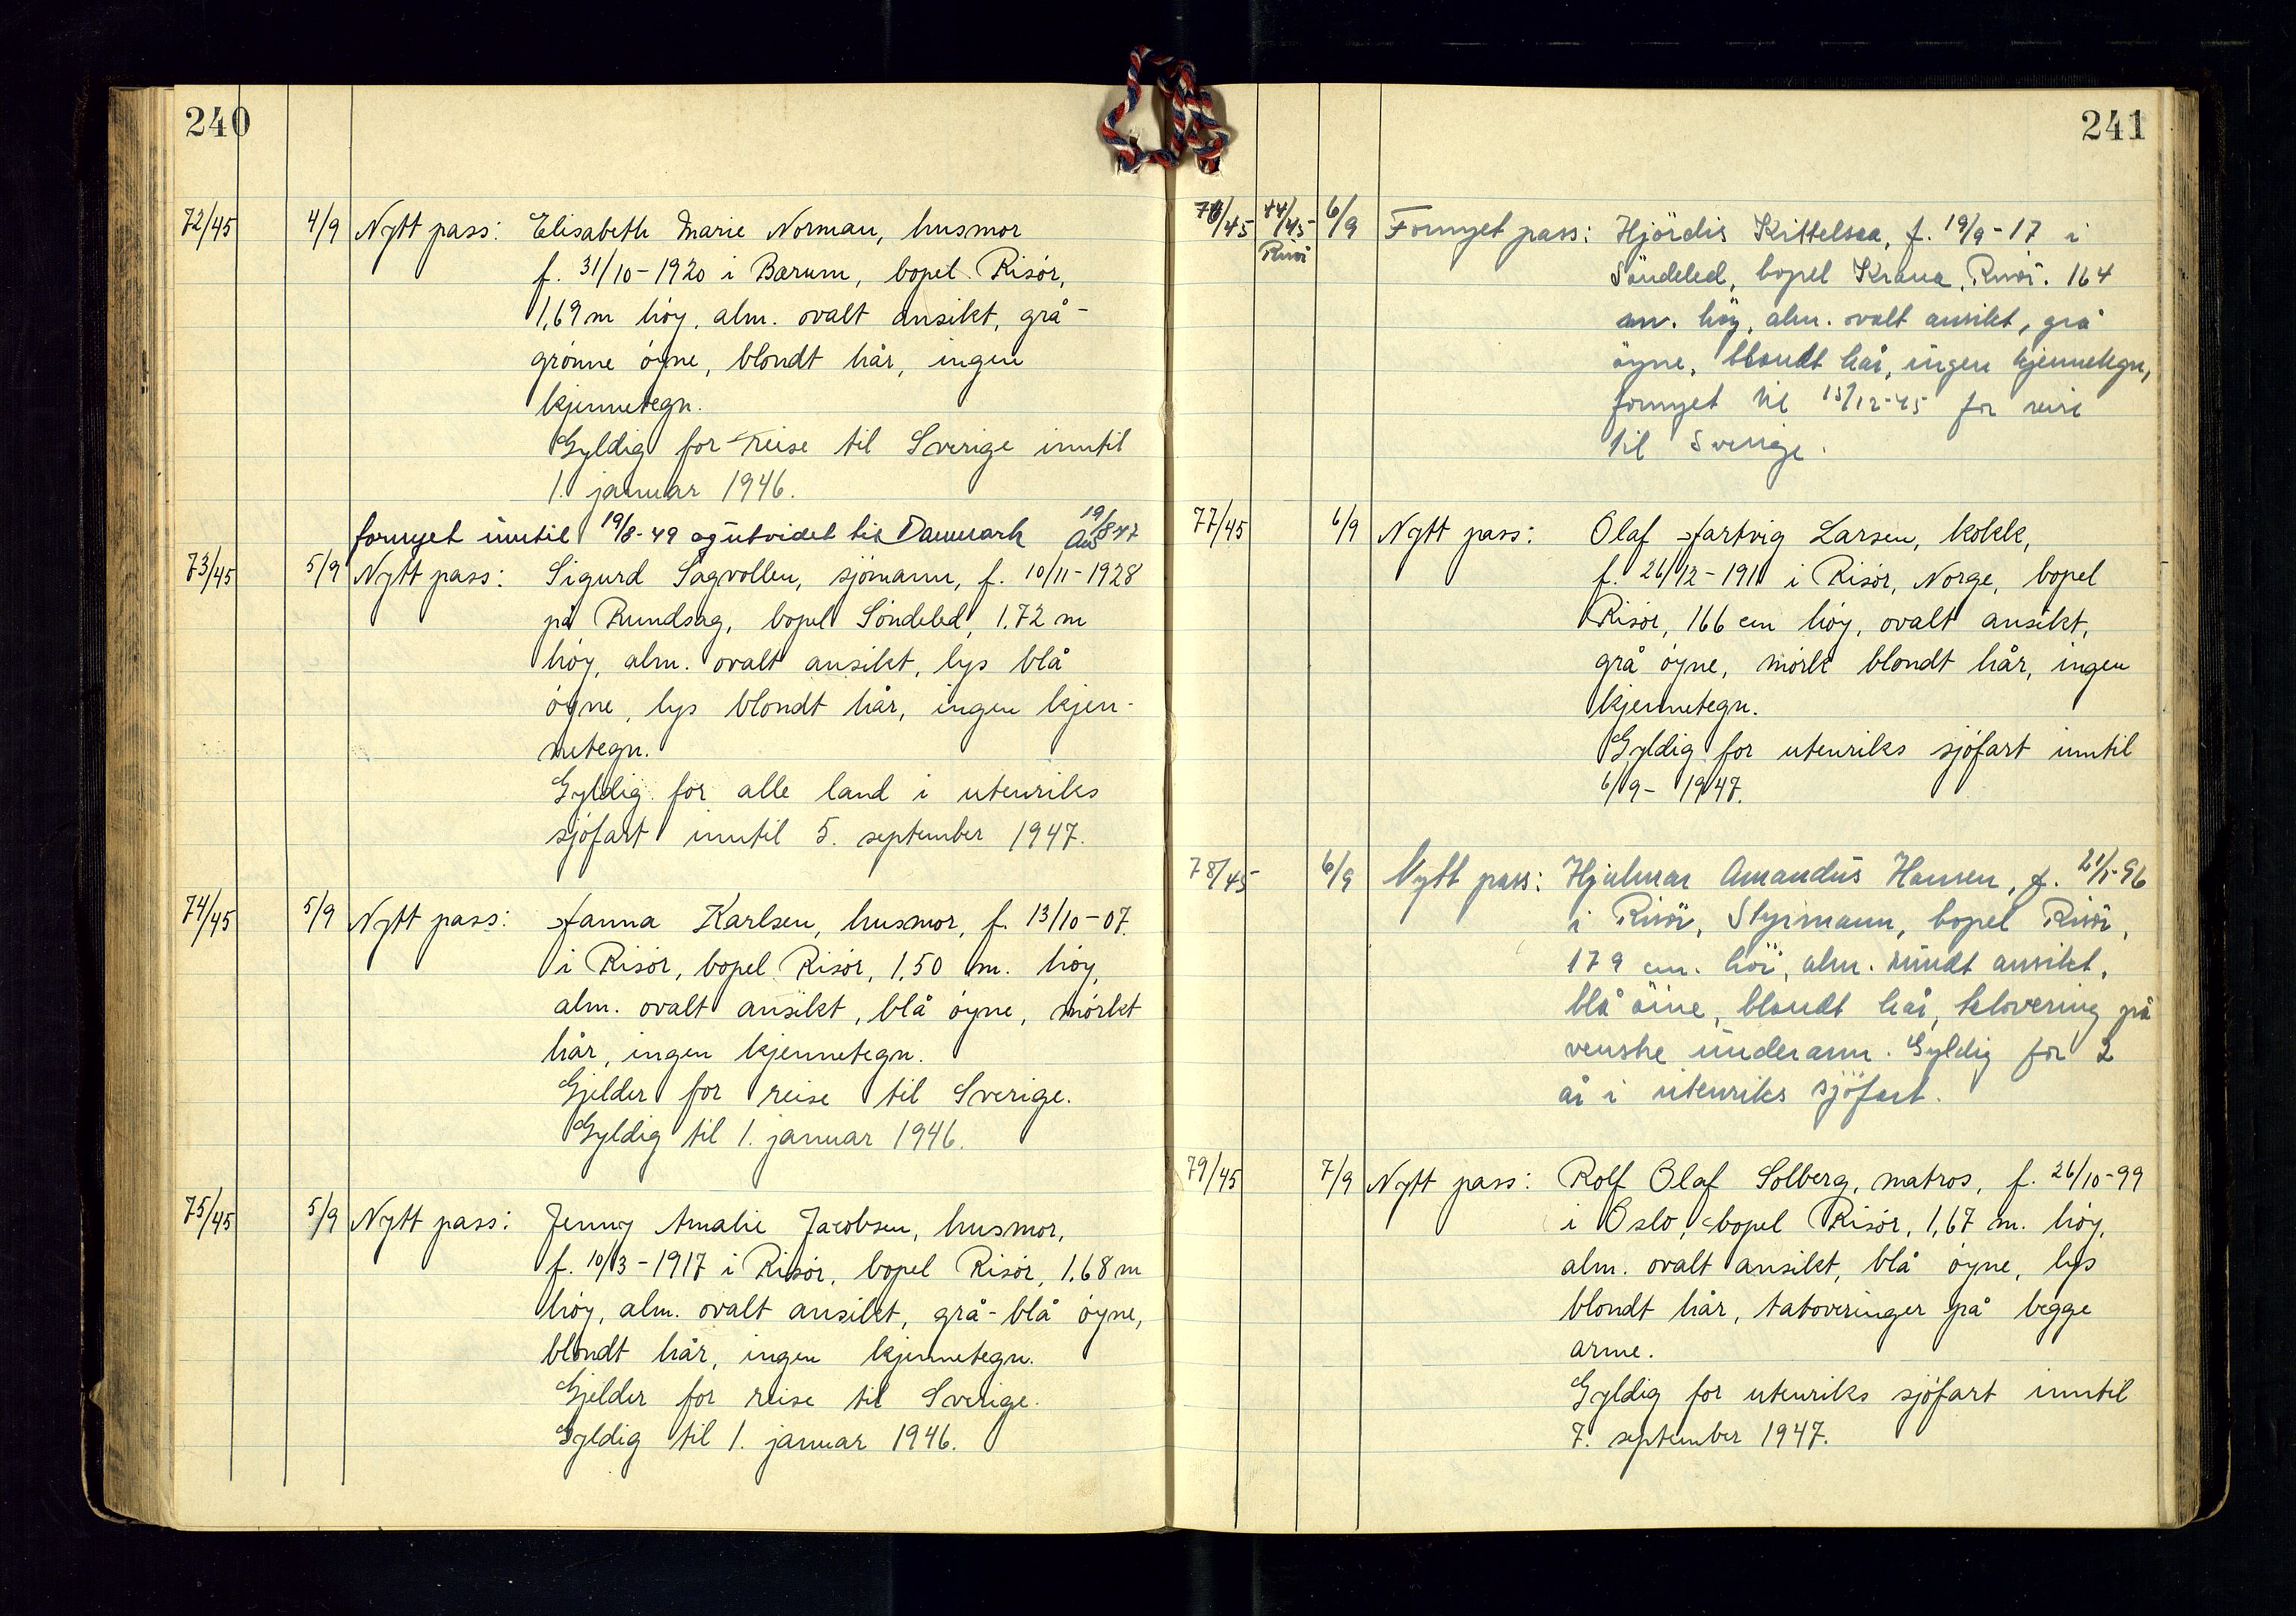 240
72/45 4/9 Nytt pass: Elisabeth Marie Norman, husmor
f. 31/10-1920 i Bærum, bopel Risör,
1,69 m höy, alm. ovalt ansikt, grå-
grönne öyne, blondt hår, ingen
kjennetegn.
Gyldig for reise til Sverige inntil
1. januar 1946.
fornyet inntil 19/8-49 og utvidet til Danmark 19/8 47
73/45 5/9 Nytt pass: Sigurd Sagvollen, sjömann, f. 10/11-1928
på Rundsag, bopel Söndeled, 1,72 m
höy, alm. ovalt ansikt, lys blå
öyne, lys blondt hår, ingen kjen-
netegn.
Gyldig for alle land i utenriks
sjöfart inntil 5. september 1947.
74/45 5/9 Nytt pass: Hanna Karlsen, husmor, f. 13/10-07.
i Risör, bopel Risör, 1,50 m. höy,
alm. ovalt ansikt, blå öyne, mörkt
hår, ingen kjennetegn.
Gjelder for reise til Sverige.
Gyldig til 1. januar 1946.
75/45 5/9 Nytt pass: Jenny Amalie Jacobsen, husmor,
f. 10/3-1917 i Risör, bopel Risör, 1,68 m
höy, alm. ovalt ansikt, grå-blå öyne,
blondt hår, ingen kjennetegn.
Gjelder for reise til Sverige.
Gyldig til 1. januar 1946.
241
76/45 44/45 Risör 6/9 Fornyet pass: Hjördis Kittelsaa, f. 19/9-17 i
Söndeled, bopel Krana, Risör. 164
cm. höy, alm. ovalt ansikt, grå
öyne, blondt hår, ingen kjennetegn,
fornyet til 15/12-45 for reise
til Sverige.
77/45 6/9 Nytt pass: Olaf Hartvig Larsen, kokk,
f. 26/12-1911 i Risör, Norge, bopel
Risör, 166 cm höy, ovalt ansikt,
grå öyne, mörk blondt hår, ingen
kjennetegn.
Gyldig for utenriks sjöfart inntil
6/9-1947.
78/45 6/9 Nytt pass: Hjalmar Amandus Hansen, f. 21/5-96
i Risör, Styrmann, bopel Risör,
179 cm. höi, alm. rundt ansikt,
blå öine, blondt hår, tatovering på
venstre underarm. Gyldig for 2
år i utenriks sjöfart.
79/45 7/9 Nytt pass: Rolf Olaf Solberg, matros, f. 26/10-99
i Oslo, bopel Risör, 1,67 m. höy,
alm. ovalt ansikt, blå öyne, lys
blondt hår, tatoveringer på begge
arme.
Gyldig for utenriks sjöfart inntil
7. september 1947.